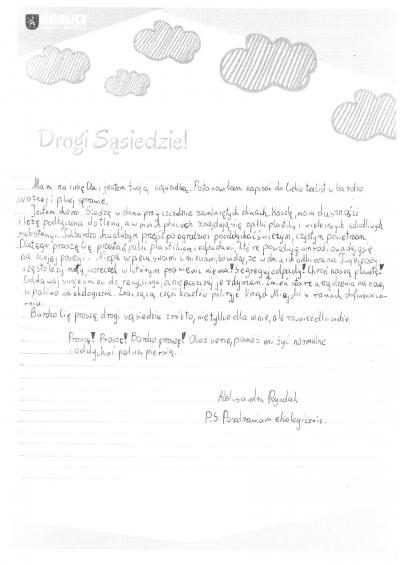 GORLICE
Drogi Sąsiedzie!
Mam na imię Ola, jestem twoją sąsiadką. Postanowiłam napisać do Ciebie ten list w bardzo
ważnej i pilnej sprawie.
Jestem chora. Siedzę w domu przy szczelnie zamkniętych oknach. Kaszlę, mam duszności
i leżę podłączona do tlenu, a w moich płucach znajdują się opiłki plastiku i wiele innych szkodliwych
substancji. Tak bardzo chciałabym przejść po ogrodzie i pooddychać świeżym, czystym powietrzem.
Dlatego proszę Cię przestań palić plastikiem i odpadami, które powodują
na mojej posesji. Nie pal w piecu
często leży mały woreczek w którym prawie nic nie ma! Segreguj odpady! Chroń naszą planetę!
Oddawaj swoje śmieci do recyclingu, a nie puszczaj je z dymem. Zmień stare urządzenia na nowe,
a paliwo na ekologiczne. Znaczącą część kosztów pokryje Urząd Miejski w ramach dofinansowa-
nia.
Bardzo Cię proszę drogi sąsiedzie zrób to, nie tylko dla mnie, ale również dla siebie
Proszę! Proszę! Bardzo proszę! Okaż serce, pomóż mi żyć normalnie
i oddychać pełną piersią.
Aleksandra
P.S. Pozdrawiam ekologicznie.